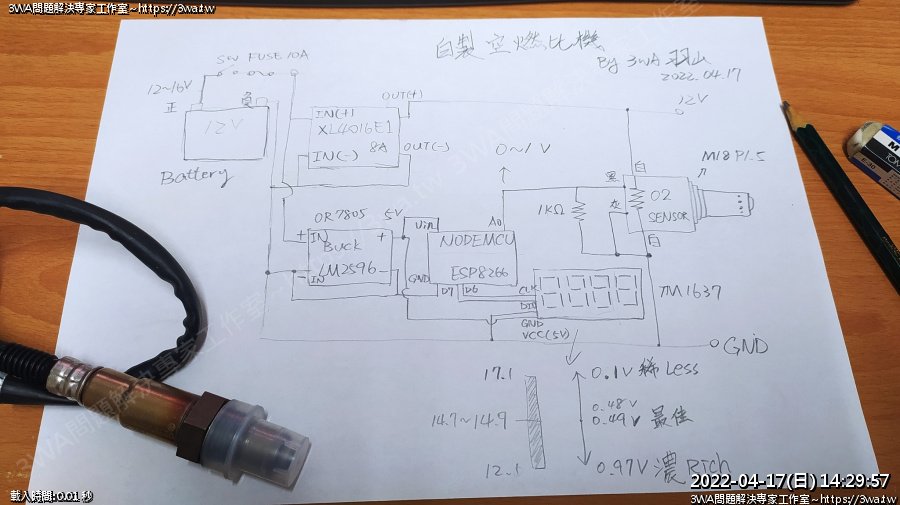 3WA問題解決專家工作室~https://3wa.tw
3WA問題解決專家工作室~https://3wa.tw
自製空燃比機
By 3WA 羽山
2022.04.17
SW FUSE 10A
12~16V
正
負
12V
Battery
IN(+)
OUT(+)
XL4016E1
8A
IN(-)
OUT(-)
0~1V
12V
M18 P1.5
白
黑
灰
O2
SENSOR
白
1KΩ
OR 7805
5V
+ IN
+
BUCK
LM2596
-
- IN
Vin
A0
NODEMCU
ESP8266
GND
D7
D6
CLK
DIO
GND
VCC(5V)
8888
TM1637
GND
17.1
0.1V 稀 Less
14.7~14.9
0.48V
0.49V
最佳
12.1
0.97V 濃 Rich
2022-04-17(日) 14:29:57
載入時間: 0.01 秒
3WA問題解決專家工作室~https://3wa.tw